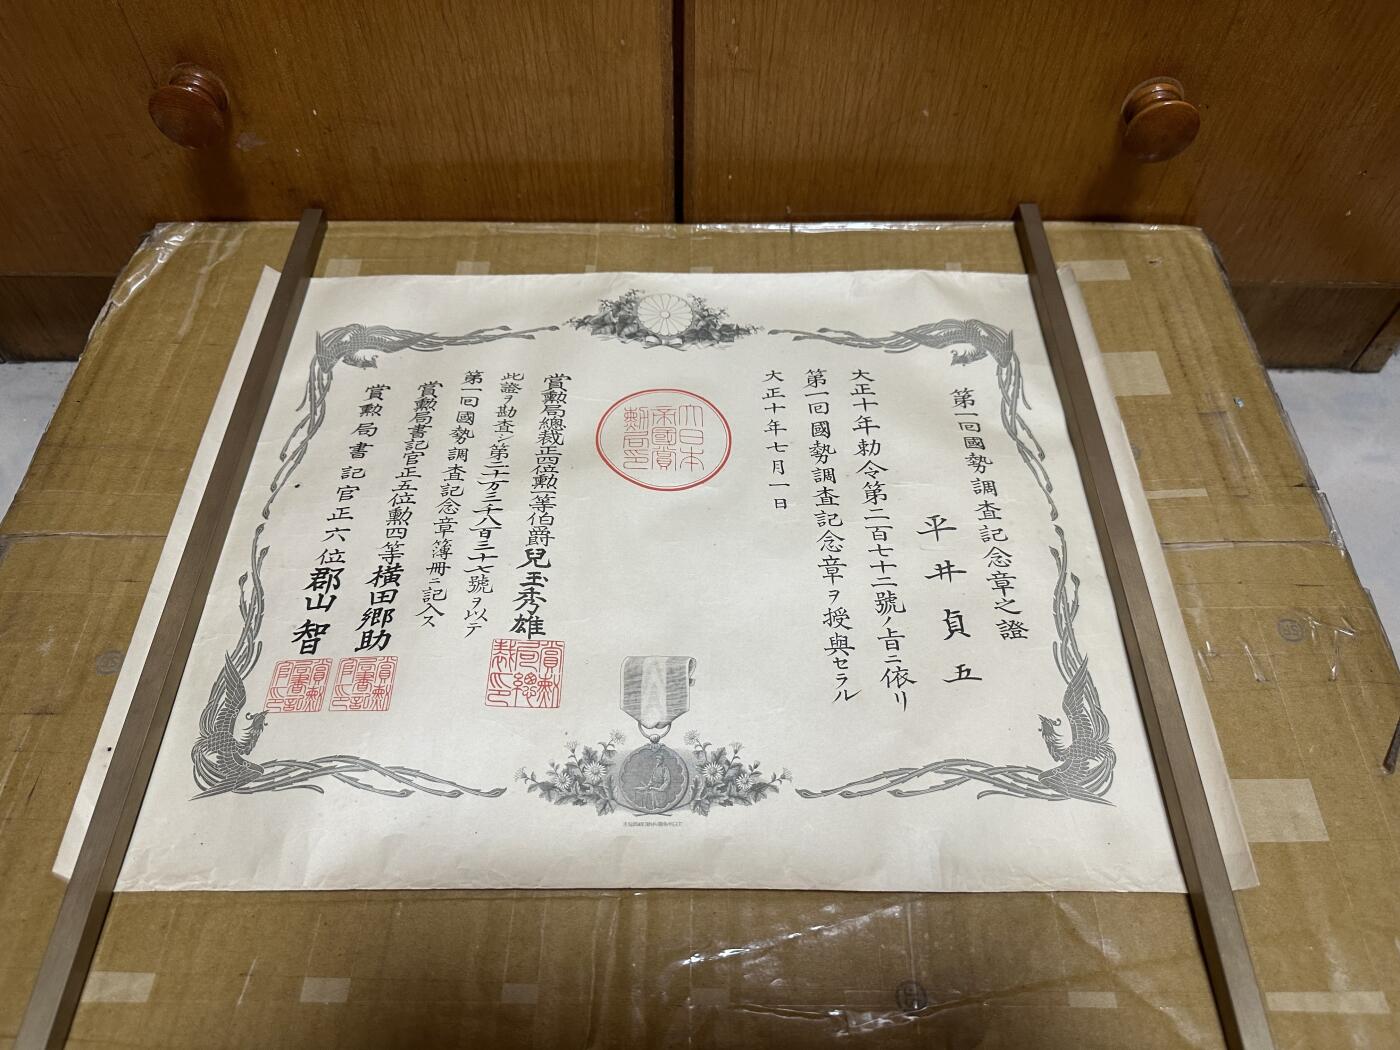 第一回國勢調査記念章之證
平井貞五
大正十年勅令第二百七十二號ノ旨ニ依リ
第一回國勢調査記念章ヲ授與セラル
大正十年七月一日
大日本
帝國賞
勲局印
賞勲局總裁正四位勲一等伯爵兒玉秀雄
賞勲
局總
裁印
此證ヲ勘査シ第二十万三千八百三十七號ヲ以テ
第一回國勢調査記念章簿冊ニ記入ス
賞勲局書記官正五位勲四等橫田郷助
賞勲
局書記
官印
賞勲局書記官正六位郡山智
賞勲
局書記
官印